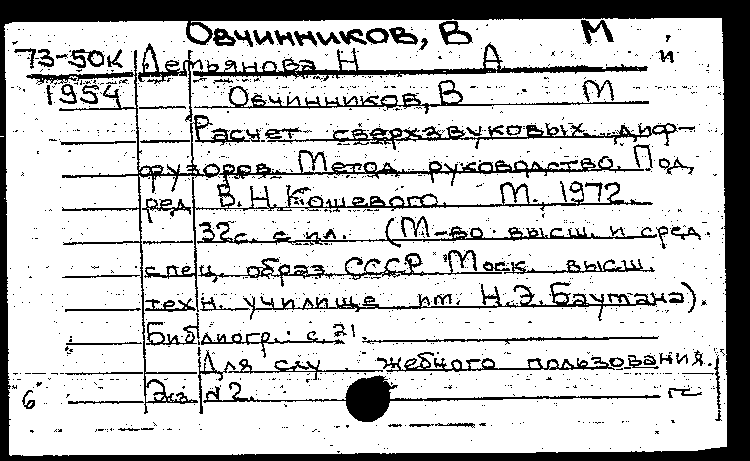 Овчинников, В М
73-50к Демьянова, Н А и
1954 Овчинников, В М
Расчет сверхзвуковых диф-
фузоров. Метод. руководство. Под
ред В. Н. Кошевого. М., 1972.
32с. с ил. (М-во высш. и сред.
спец. образ СССР Моск. высш.
техн. училище им. Н.Э. Баумана).
Библиогр.: с. 31.
Для служебного пользования.
6 Экз. №2. г